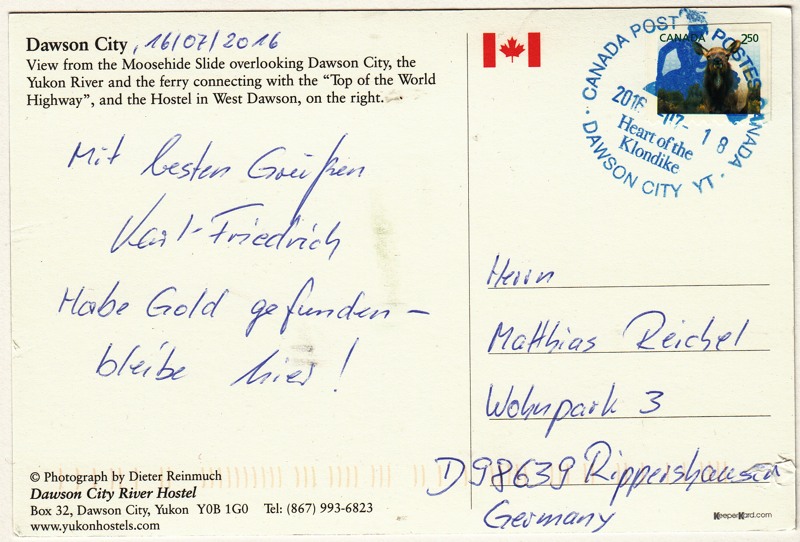 Dawson City, 16/07/2016
View from the Moosehide Slide overlooking Dawson City, the
Yukon River and the ferry connecting with the “Top of the World
Highway”, and the Hostel in West Dawson, on the right.
Mit besten Grüßen
Karl-Friedrich
Habe Gold gefunden –
bleibe hier!
© Photograph by Dieter Reinmuch
Dawson City River Hostel
Box 32, Dawson City, Yukon Y0B 1G0 Tel: (867) 993-6823
www.yukonhostels.com
CANADA 250
CANADA POST POSTES CANADA
2016 -07- 18
Heart of the
Klondike
DAWSON CITY YT
Herrn
Matthias Reichel
Wohnpark 3
D 98639 Rippershausen
Germany
KeeperKard.com